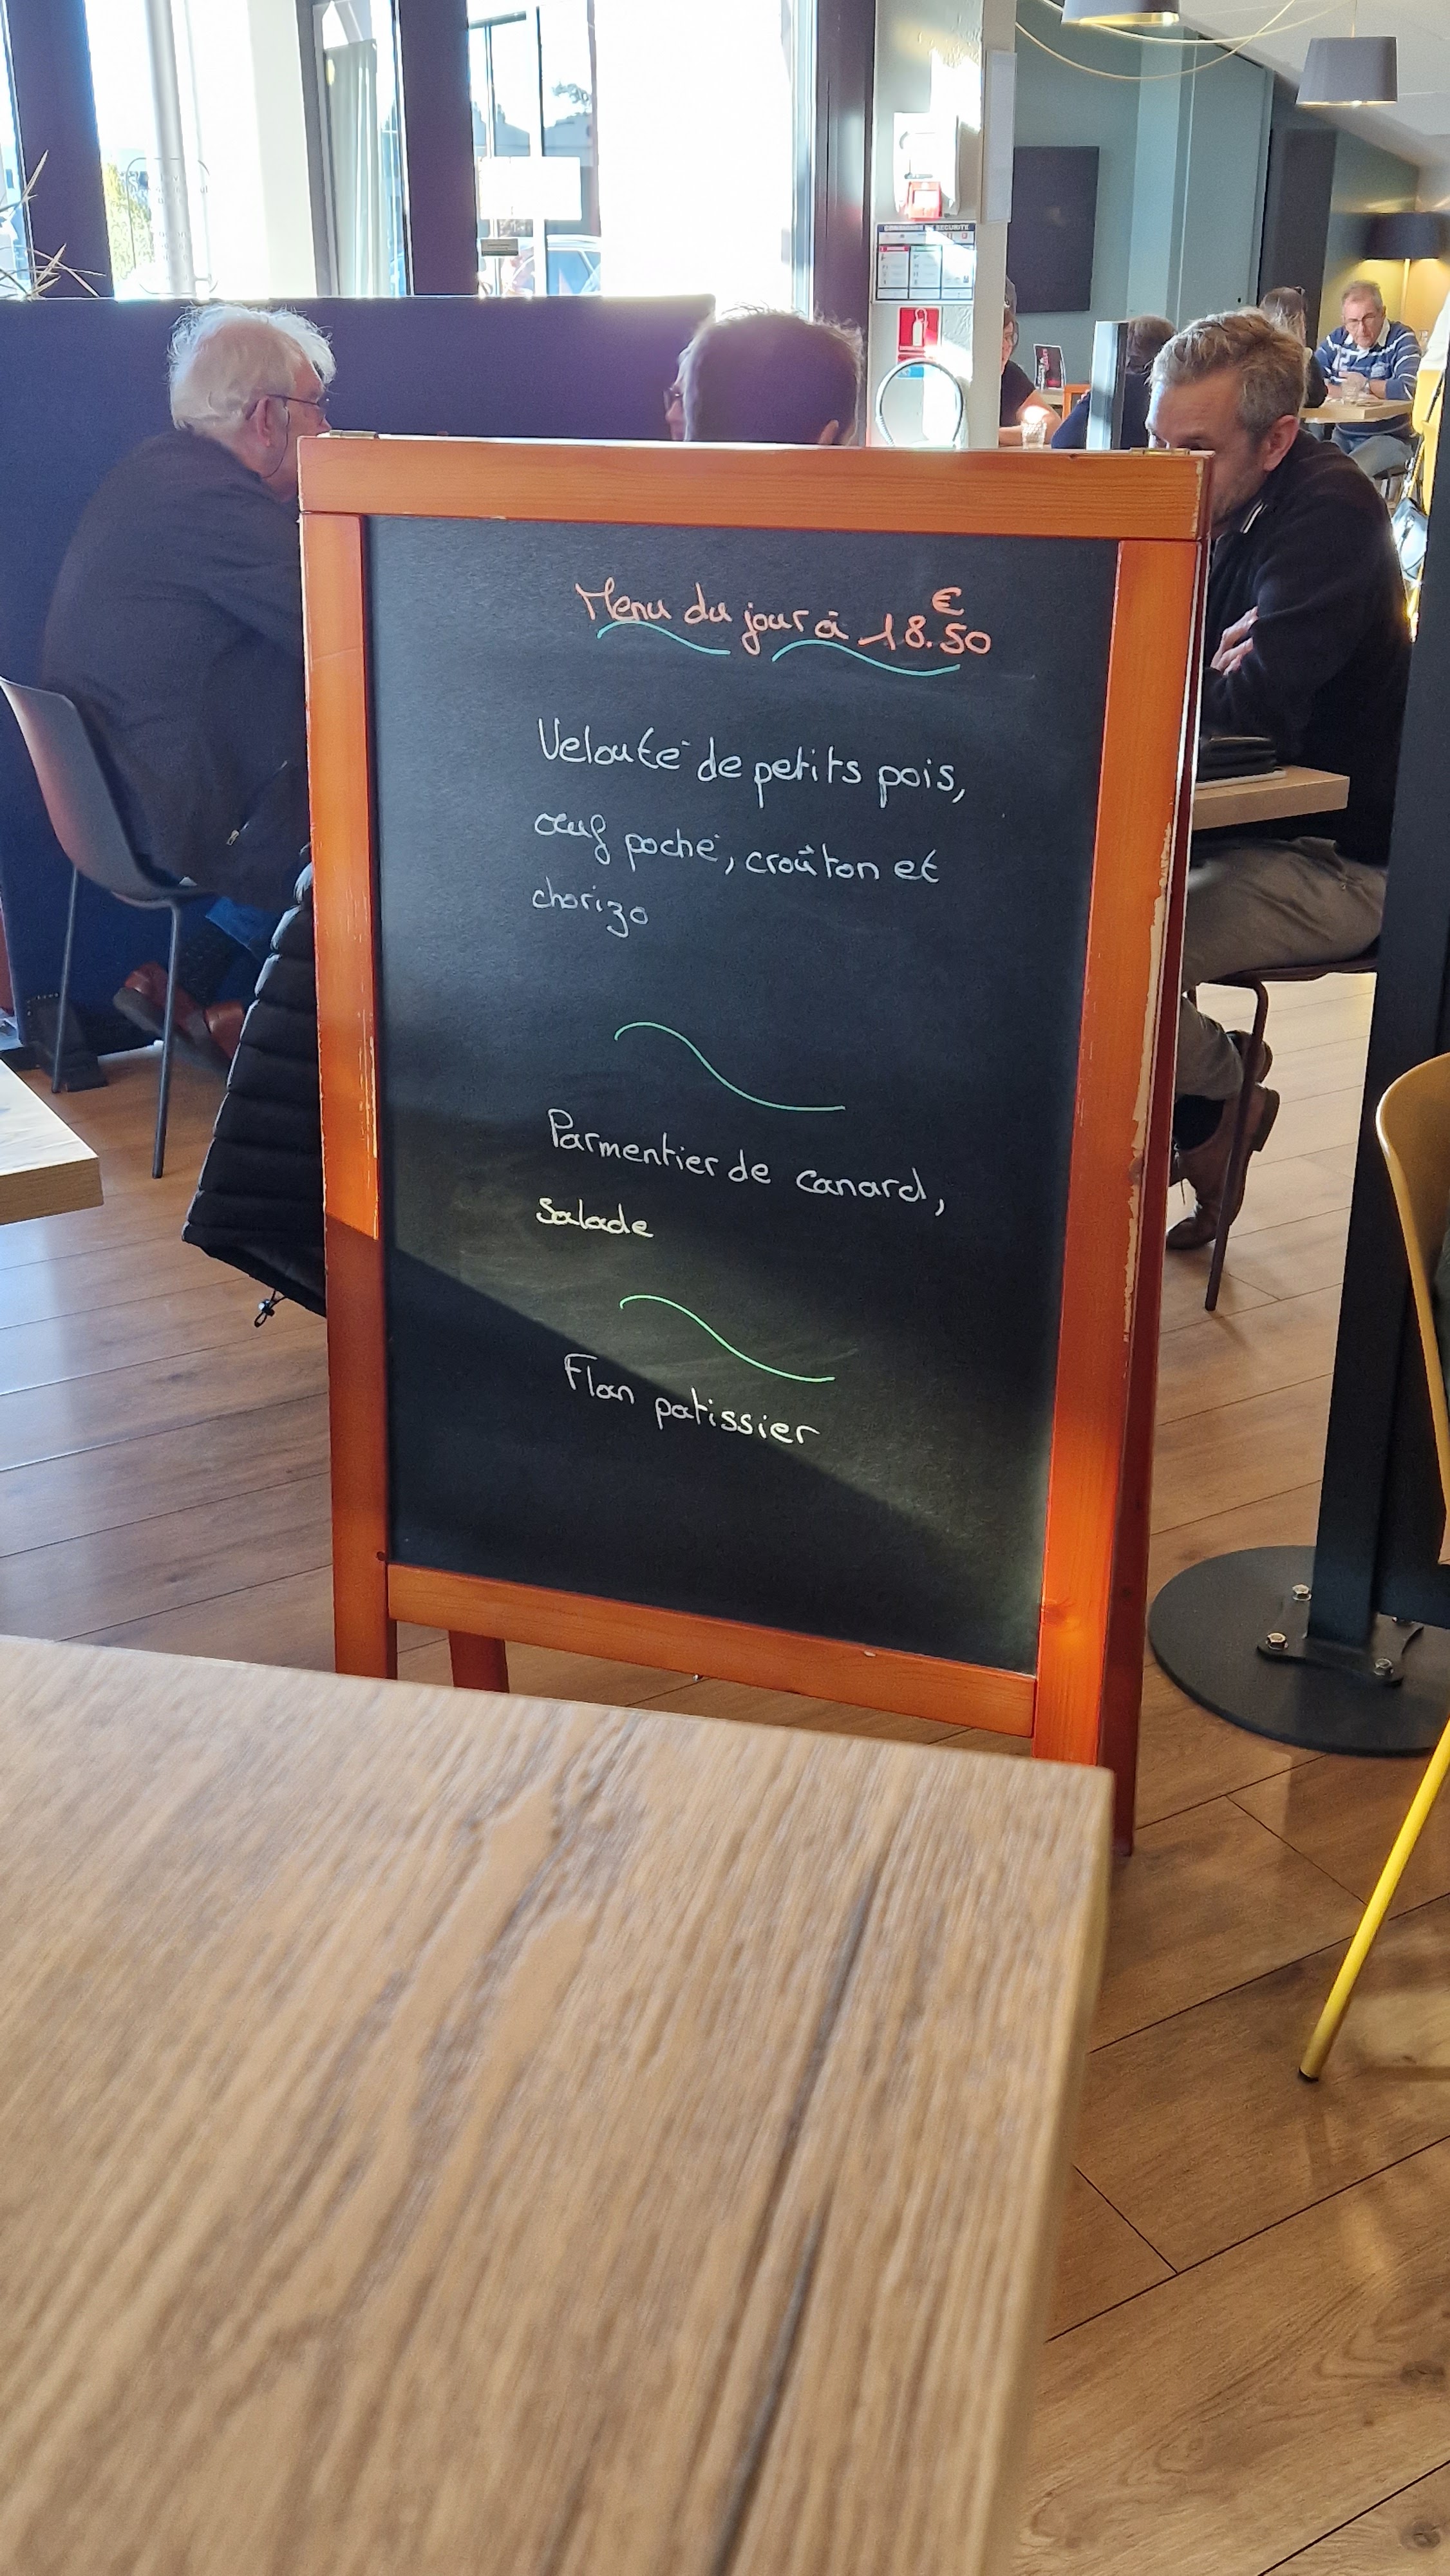 Menu du jour à 18.50€
Velouté de petits pois,
œuf poché, croûton et
chorizo
Parmentier de canard,
Salade
Flan patissier